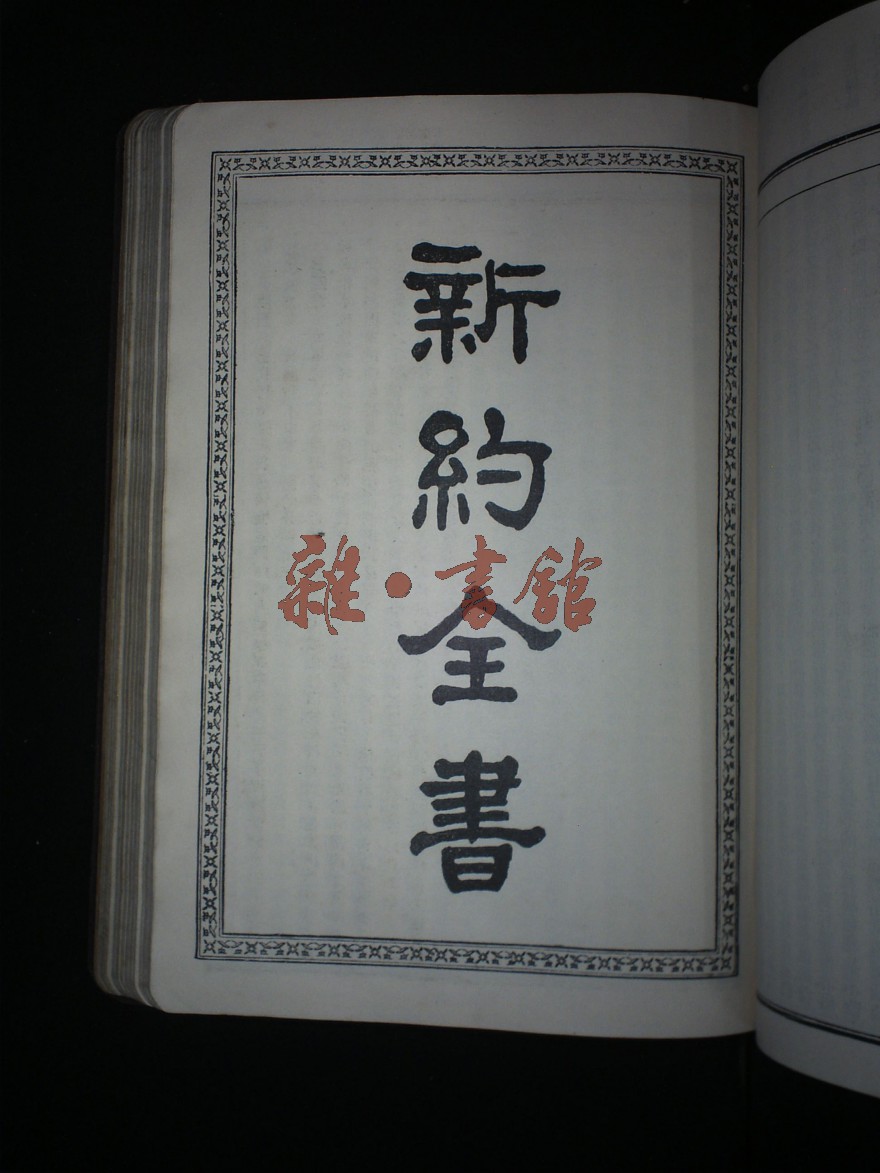 新約全書
雜·書館